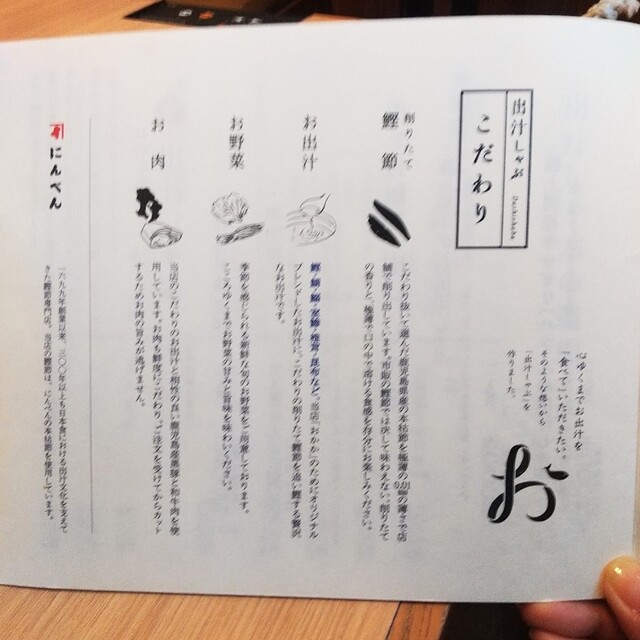 出汁しゃぶ Dashishabu
こだわり
心ゆくまでお出汁を
「食べて」いただきたい。
そのような想いから
「出汁しゃぶ」を
作りました。
お
削りたて
鰹節
こだわり抜いて選んだ鹿児島県産の本枯節を極薄の0.01㎜の薄さで店
舗で削り出しています。市販の鰹節では決して味わえない、削りたて
の香りと、極薄で口の中で溶ける食感を存分にお楽しみください。
お出汁
なお出汁です。
お野菜
季節を感じられる新鮮な旬のお野菜をご用意しております。
こころゆくまでお野菜の甘みと旨味を味わいください。
お肉
当店のこだわりのお出汁と相性の良い鹿児島県産黒豚と和牛肉を使
用しています。お肉も鮮度にこだわり、ご注文を受けてからカット
するためお肉の旨みが逃げません。
にんべん
一六九九年創業以来、三〇〇年以上も日本食における出汁文化を支えて
きた鰹節専門店。当店の鰹節は、にんべんの本枯節を使用しています。